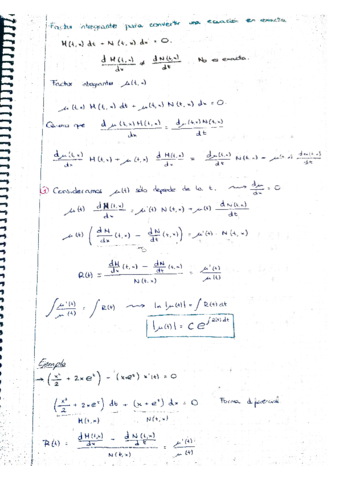 Factor integrante para convertir una ecuación en exacta
M(t,x) dt + N(t,x) dx = 0.
d M(t,x)/dx ≠ d N(t,x)/dt No es exacta.
Factor integrante μ(t,x)
μ(t,x) M(t,x) dt + μ(t,x) N(t,x) dx = 0.
Quiero que d μ(t,x) M(t,x)/dx = d μ(t,x) N(t,x)/dt
dμ(t,x)/dx M(t,x) + μ(t,x) d M(t,x)/dx = dμ(t,x)/dt N(t,x) + μ(t,x) dN(t,x)/dt
① Consideramos μ(t) sólo depende de la t. ⟿ dμ/dx = 0
μ(t) dM(t,x)/dx = μ'(t) N(t,x) + μ(t) dN(t,x)/dt
μ(t) (dM/dx (t,x) - dN/dt (t,x)) = μ'(t) · N(t,x)
R(t) = (dM/dx (t,x) - dN/dt (t,x))/N(t,x) = μ'(t)/μ(t)
∫ μ'(t)/μ(t) = ∫ R(t) ⟿ ln |μ(t)| = ∫ R(t) dt
|μ(t)| = C e^∫R(t) dt
Ejemplo
→ (x²/2 + 2xe^t) + (x+e^t) x'(t) = 0
(x²/2 + 2xe^t) dt + (x + e^t) dx = 0 Forma diferencial
M(t,x) N(t,x)
R(t) = (d M(t,x)/dx - d N(t,x)/dt)/N(t,x) = μ'(t)/μ(t)